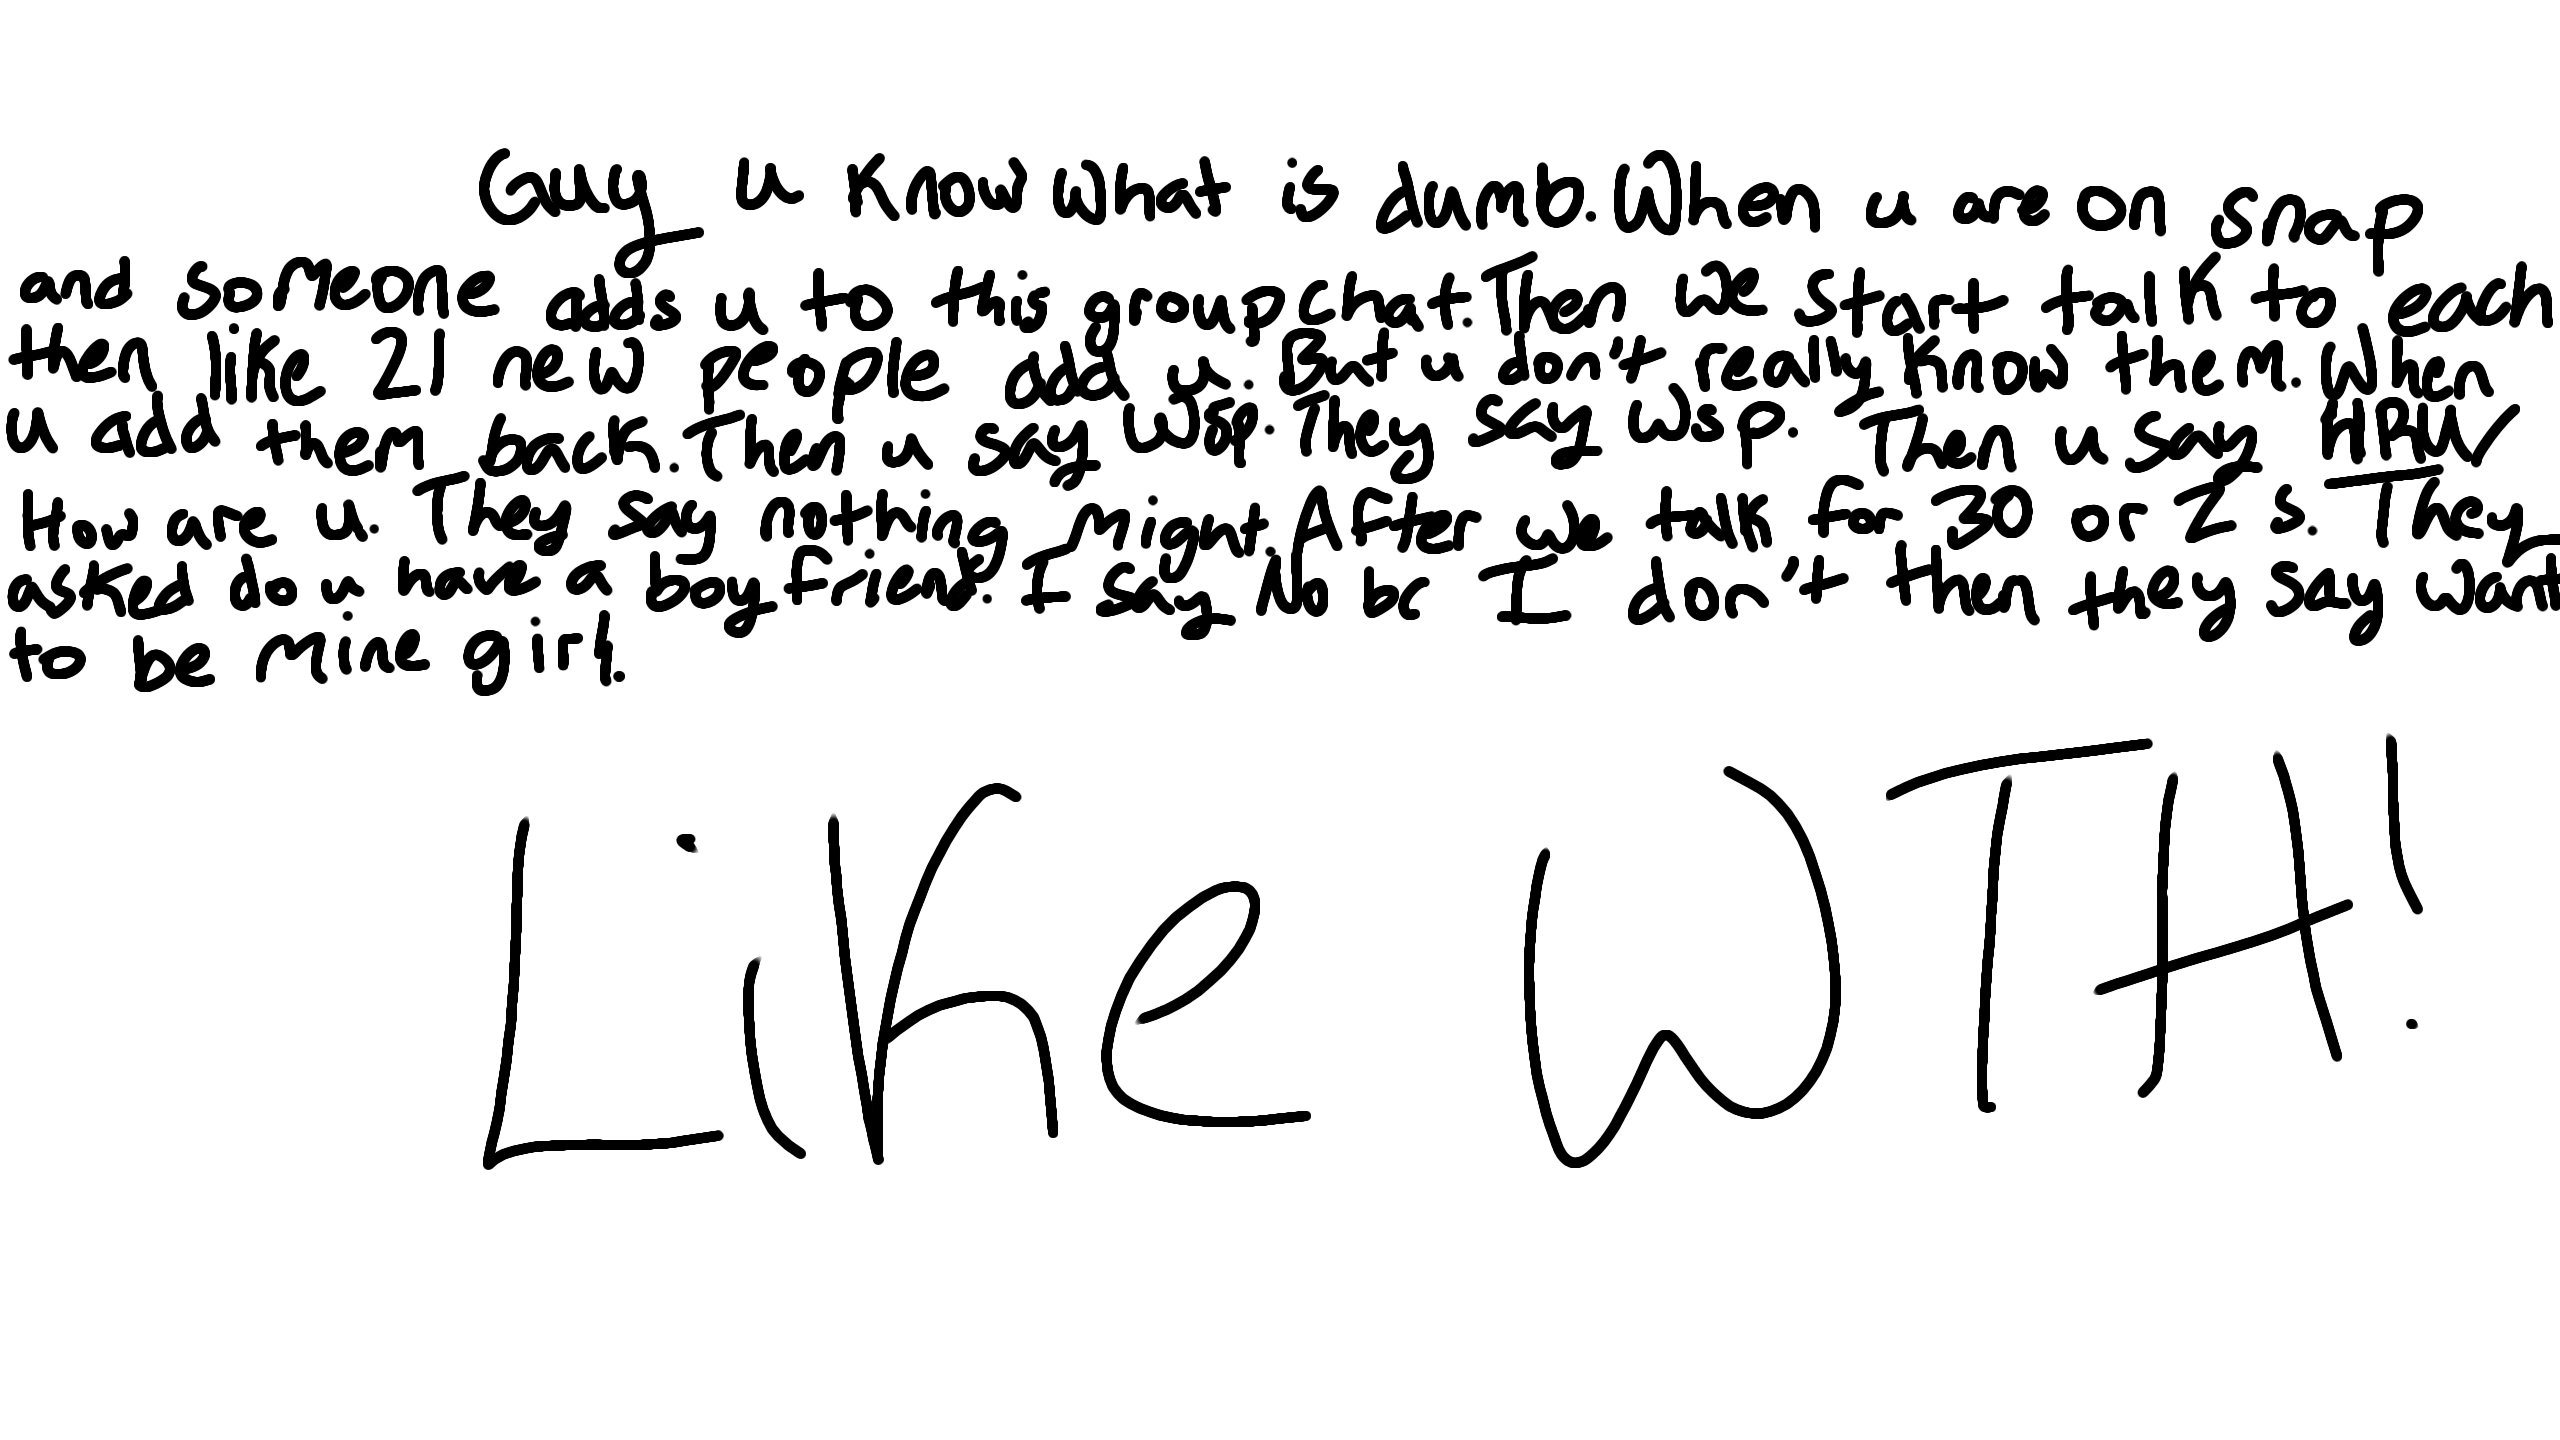 Guy u know what is dumb. When u are on snap
and someone adds u to this group chat. Then we start talk to each
then like 21 new people add u. But u don't really know them. When
u add them back. Then u say wsp. They say wsp. Then u say HRU/
How are u. They say nothing might. After we talk for 30 or 2 s. They
asked do u have a boyfriend. I say No bc I don't then they say want
to be mine girl.
Like WTH!